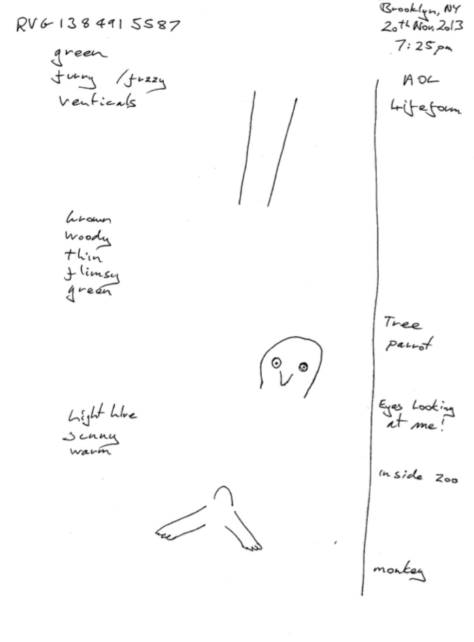 RVG 1384915587
Brooklyn, NY
20th Nov 2013
7:25pm
green
furry / fuzzy
verticals
AOL
Lifeform
brown
woody
thin
flimsy
green
Tree
parrot
Eyes looking
at me!
light blue
sunny
warm
inside zoo
monkey